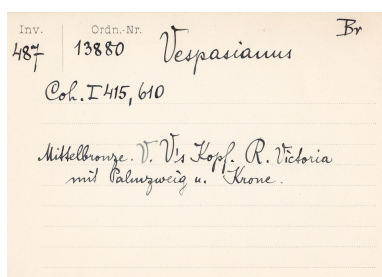 Inv. Ordn.-Nr. Br
487 13880 Vespasianus
Coh. I 415, 610
Mittelbronze. V. V's Kopf. R. Victoria
mit Palmzweig u. Krone.